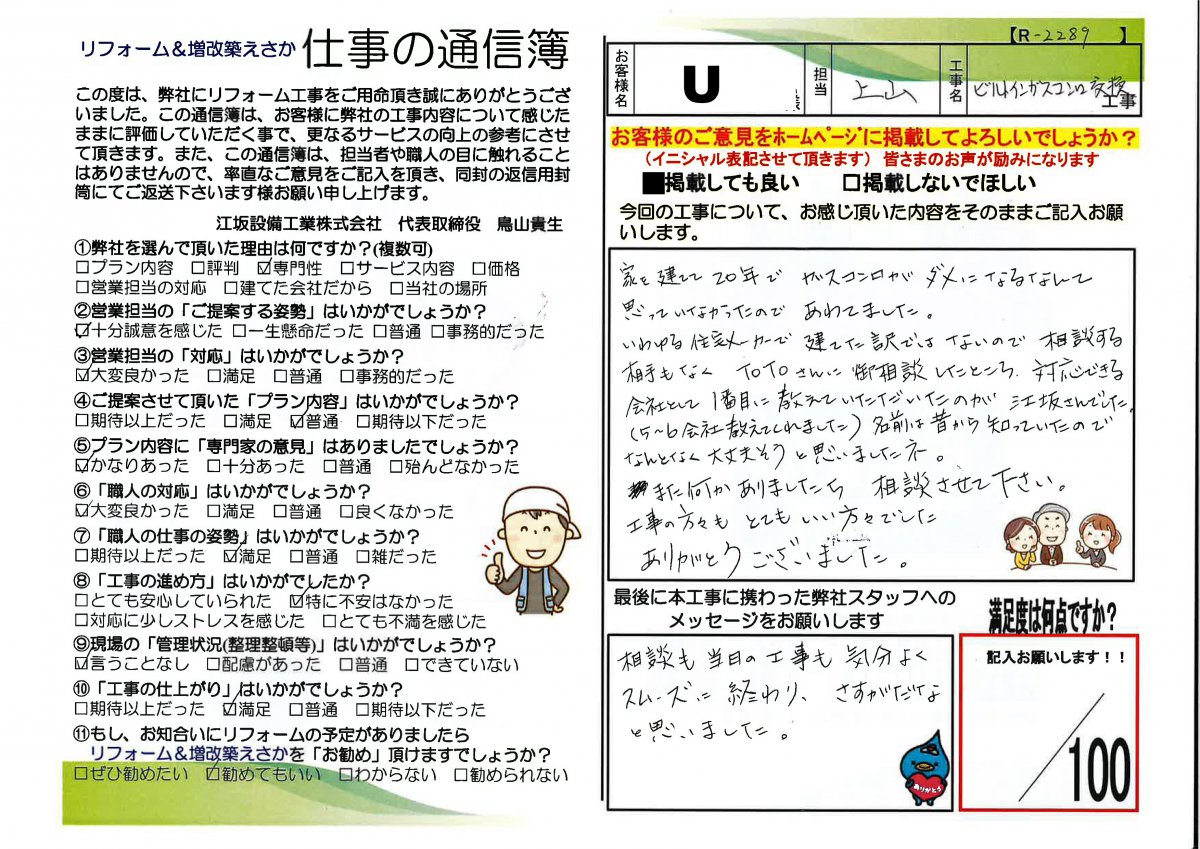 リフォーム&増改築えさか 仕事の通信簿
この度は、弊社にリフォーム工事をご用命頂き誠にありがとうござ
いました。この通信簿は、お客様に弊社の工事内容について感じた
ままに評価していただく事で、更なるサービスの向上の参考にさせ
て頂きます。また、この通信簿は、担当者や職人の目に触れること
はありませんので、率直なご意見をご記入を頂き、同封の返信用封
筒にてご返送下さいます様お願い申し上げます。
江坂設備工業株式会社 代表取締役 鳥山貴生
①弊社を選んで頂いた理由は何ですか?(複数可)
□プラン内容 □評判 ☑専門性 □サービス内容 □価格
□営業担当の対応 □建てた会社だから □当社の場所
②営業担当の「ご提案する姿勢」はいかがでしょうか?
☑十分誠意を感じた □一生懸命だった □普通 □事務的だった
③営業担当の「対応」はいかがでしょうか?
☑大変良かった □満足 □普通 □事務的だった
④ご提案させて頂いた「プラン内容」はいかがでしょうか?
□期待以上だった □満足 ☑普通 □期待以下だった
⑤プラン内容に「専門家の意見」はありましたでしょうか?
☑かなりあった □十分あった □普通 □殆んどなかった
⑥「職人の対応」はいかがでしょうか?
☑大変良かった □満足 □普通 □良くなかった
⑦「職人の仕事の姿勢」はいかがでしょうか?
□期待以上だった ☑満足 □普通 □雑だった
⑧「工事の進め方」はいかがでしたか?
□とても安心していられた ☑特に不安はなかった
□対応に少しストレスを感じた □とても不満を感じた
⑨現場の「管理状況(整理整頓等)」はいかがでしょうか?
☑言うことなし □配慮があった □普通 □できていない
⑩「工事の仕上がり」はいかがでしょうか?
□期待以上だった ☑満足 □普通 □期待以下だった
⑪もし、お知合いにリフォームの予定がありましたら
リフォーム&増改築えさかを「お勧め」頂けますでしょうか?
□ぜひ勧めたい ☑勧めてもいい □わからない □勧められない
【R-2289 】
お客様名 U 様 担当 上山 工事名 ビルトインガスコンロ交換 工事
お客様のご意見をホームページに掲載してよろしいでしょうか?
(イニシャル表記させて頂きます) 皆さまのお声が励みになります
■掲載しても良い □掲載しないでほしい
今回の工事について、お感じ頂いた内容をそのままご記入お願
いします。
家を建てて20年で ガスコンロがダメになるなんて
思っていなかったので あわてました。
いわゆる住宅メーカーで 建てた訳ではないので 相談する
相手もなく TOTOさんに御相談したところ、対応できる
会社として 1番目に教えていただいたのが 江坂さんでした。
(5~6会社教えてくれました) 名前は昔から知っていたので
なんとなく大丈夫そうと思いましたネ。
また何かありましたら 相談させて下さい。
工事の方々も とてもいい方々でした
ありがとうございました。
最後に本工事に携わった弊社スタッフへの
メッセージをお願いします
相談も当日の工事も気分よく
スムーズに終わり、さすがだな
と思いました。
ありがとう
満足度は何点ですか?
記入お願いします!!
/100